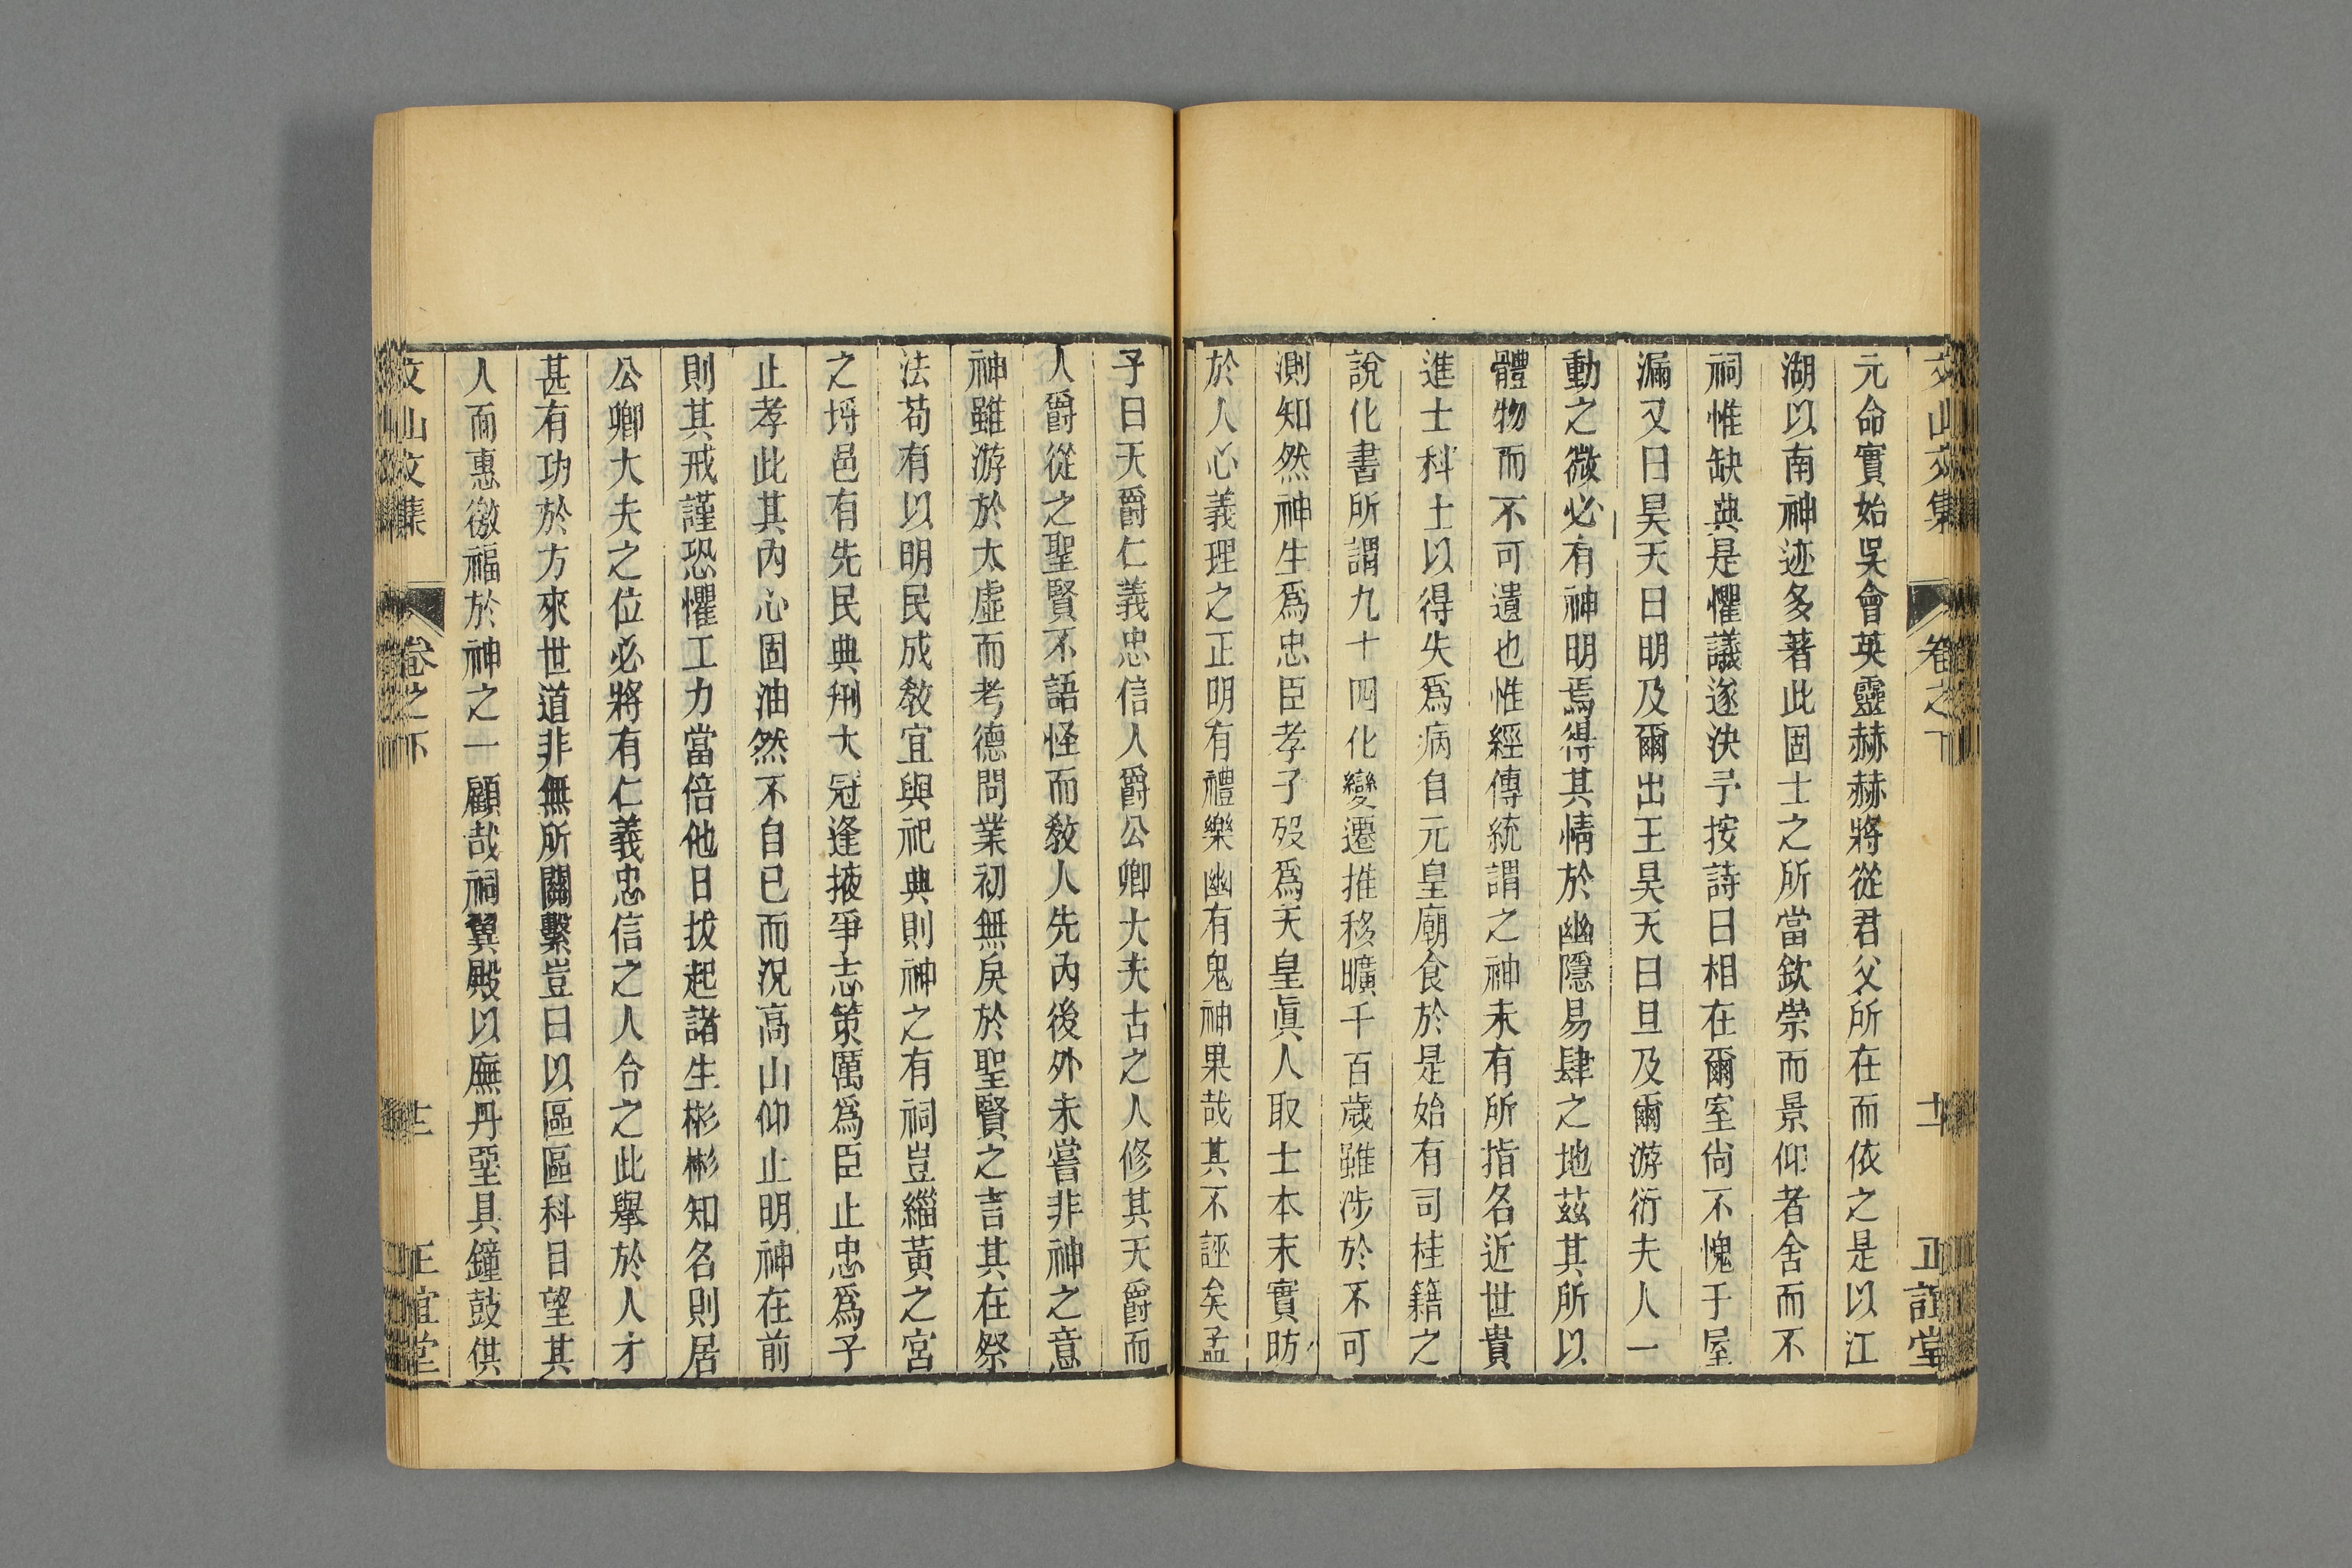 文山文集 卷之下 十二 正誼堂
元命實始吳會英靈赫赫將從君父所在而依之是以江
湖以南神迹多著此固士之所當欽崇而景仰者舍而不
祠惟缺典是懼議遂決予按詩曰相在爾室尚不愧于屋
漏又曰昊天曰明及爾出王昊天曰旦及爾游衍夫人一
動之微必有神明焉得其情於幽隱易肆之地茲其所以
體物而不可遺也惟經傳統謂之神未有所指名近世貴
進士科士以得失為病自元皇廟食於是始有司桂籍之
說化書所謂九十四化變遷推移曠千百歲雖涉於不可
測知然神生爲忠臣孝子歿爲天皇眞人取士本末實昉
於人心義理之正明有禮樂幽有鬼神果哉其不誣矣孟
子曰天爵仁義忠信人爵公卿大夫古之人修其天爵而
人爵從之聖賢不語怪而敎人先內後外未嘗非神之意
神雖游於太虛而考德問業初無戾於聖賢之言其在祭
法苟有以明民成敎宜與祀典則神之有祠豈緇黃之宮
之埒邑有先民典刑大冠逢掖爭志策厲爲臣止忠爲子
止孝此其內心固油然不自已而況高山仰止明神在前
則其戒謹恐懼工力當倍他日拔起諸生彬彬知名則居
公卿大夫之位必將有仁義忠信之人合之此舉於人才
甚有功於方來世道非無所關繫豈曰以區區科目望其
人而惠徼福於神之一顧哉祠翼殿以廡丹堊具鐘鼓供
文山文集 卷之下 十二 正誼堂